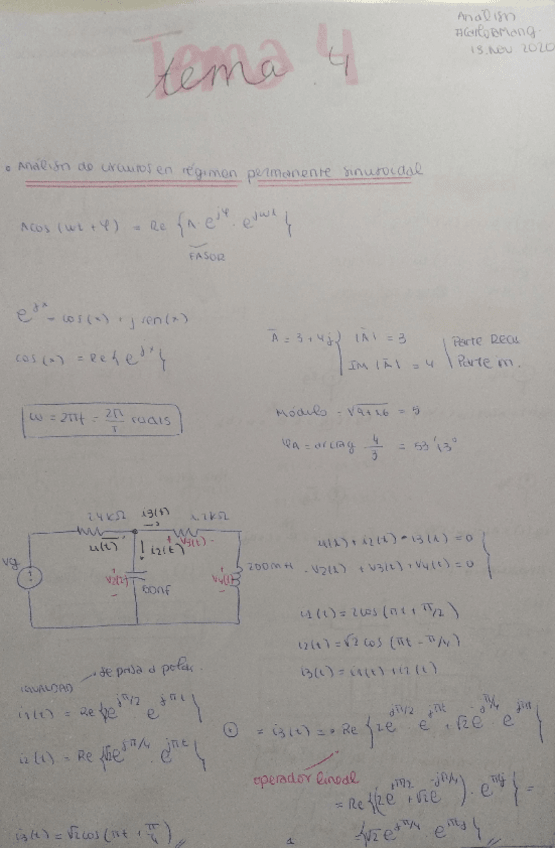 Análisis
13. Nov 2020
Tema 4
tema 4
• Análisis de circuitos en régimen permanente sinusoidal
A cos (ωt + φ) = Re {A · e^jφ · e^jωt}
FASOR
e^jx = cos(x) + j sen(x)
cos(x) = Re{e^jx}
Ā = 3 + 4j
|Ā| = 3
IM |Ā| = 4
Parte Real
Parte im.
ω = 2πf = 2π/T rad/s
Módulo = √9+16 = 5
φA = arctag 4/3 = 53'13°
24kΩ
i3(t)
1'2kΩ
i1(t)
i2(t)
v3(t)
vg
v2(t)
v4(t)
200mH
i1(t) + i2(t) - i3(t) = 0
- v2(t) + v3(t) + v4(t) = 0
i1(t) = 2cos(πt + π/2)
i2(t) = √2 cos (πt - π/4)
i3(t) = i1(t) + i2(t)
se pasa a polar.
IGUALDAD
i1(t) = Re{2e^jπ/2 e^jπt}
i2(t) = Re{√2e^jπ/4 · e^jπt}
= i3(t) = Re {2e^jπ/2 · e^jπt + √2e^-jπ/4 · e^jπt}
operador lineal
= Re{(2e^jπ/2 + √2e^-jπ/4) · e^πtj} =
{√2e^jπ/4 e^πtj}
i3(t) = √2cos(πt + π/4)
1